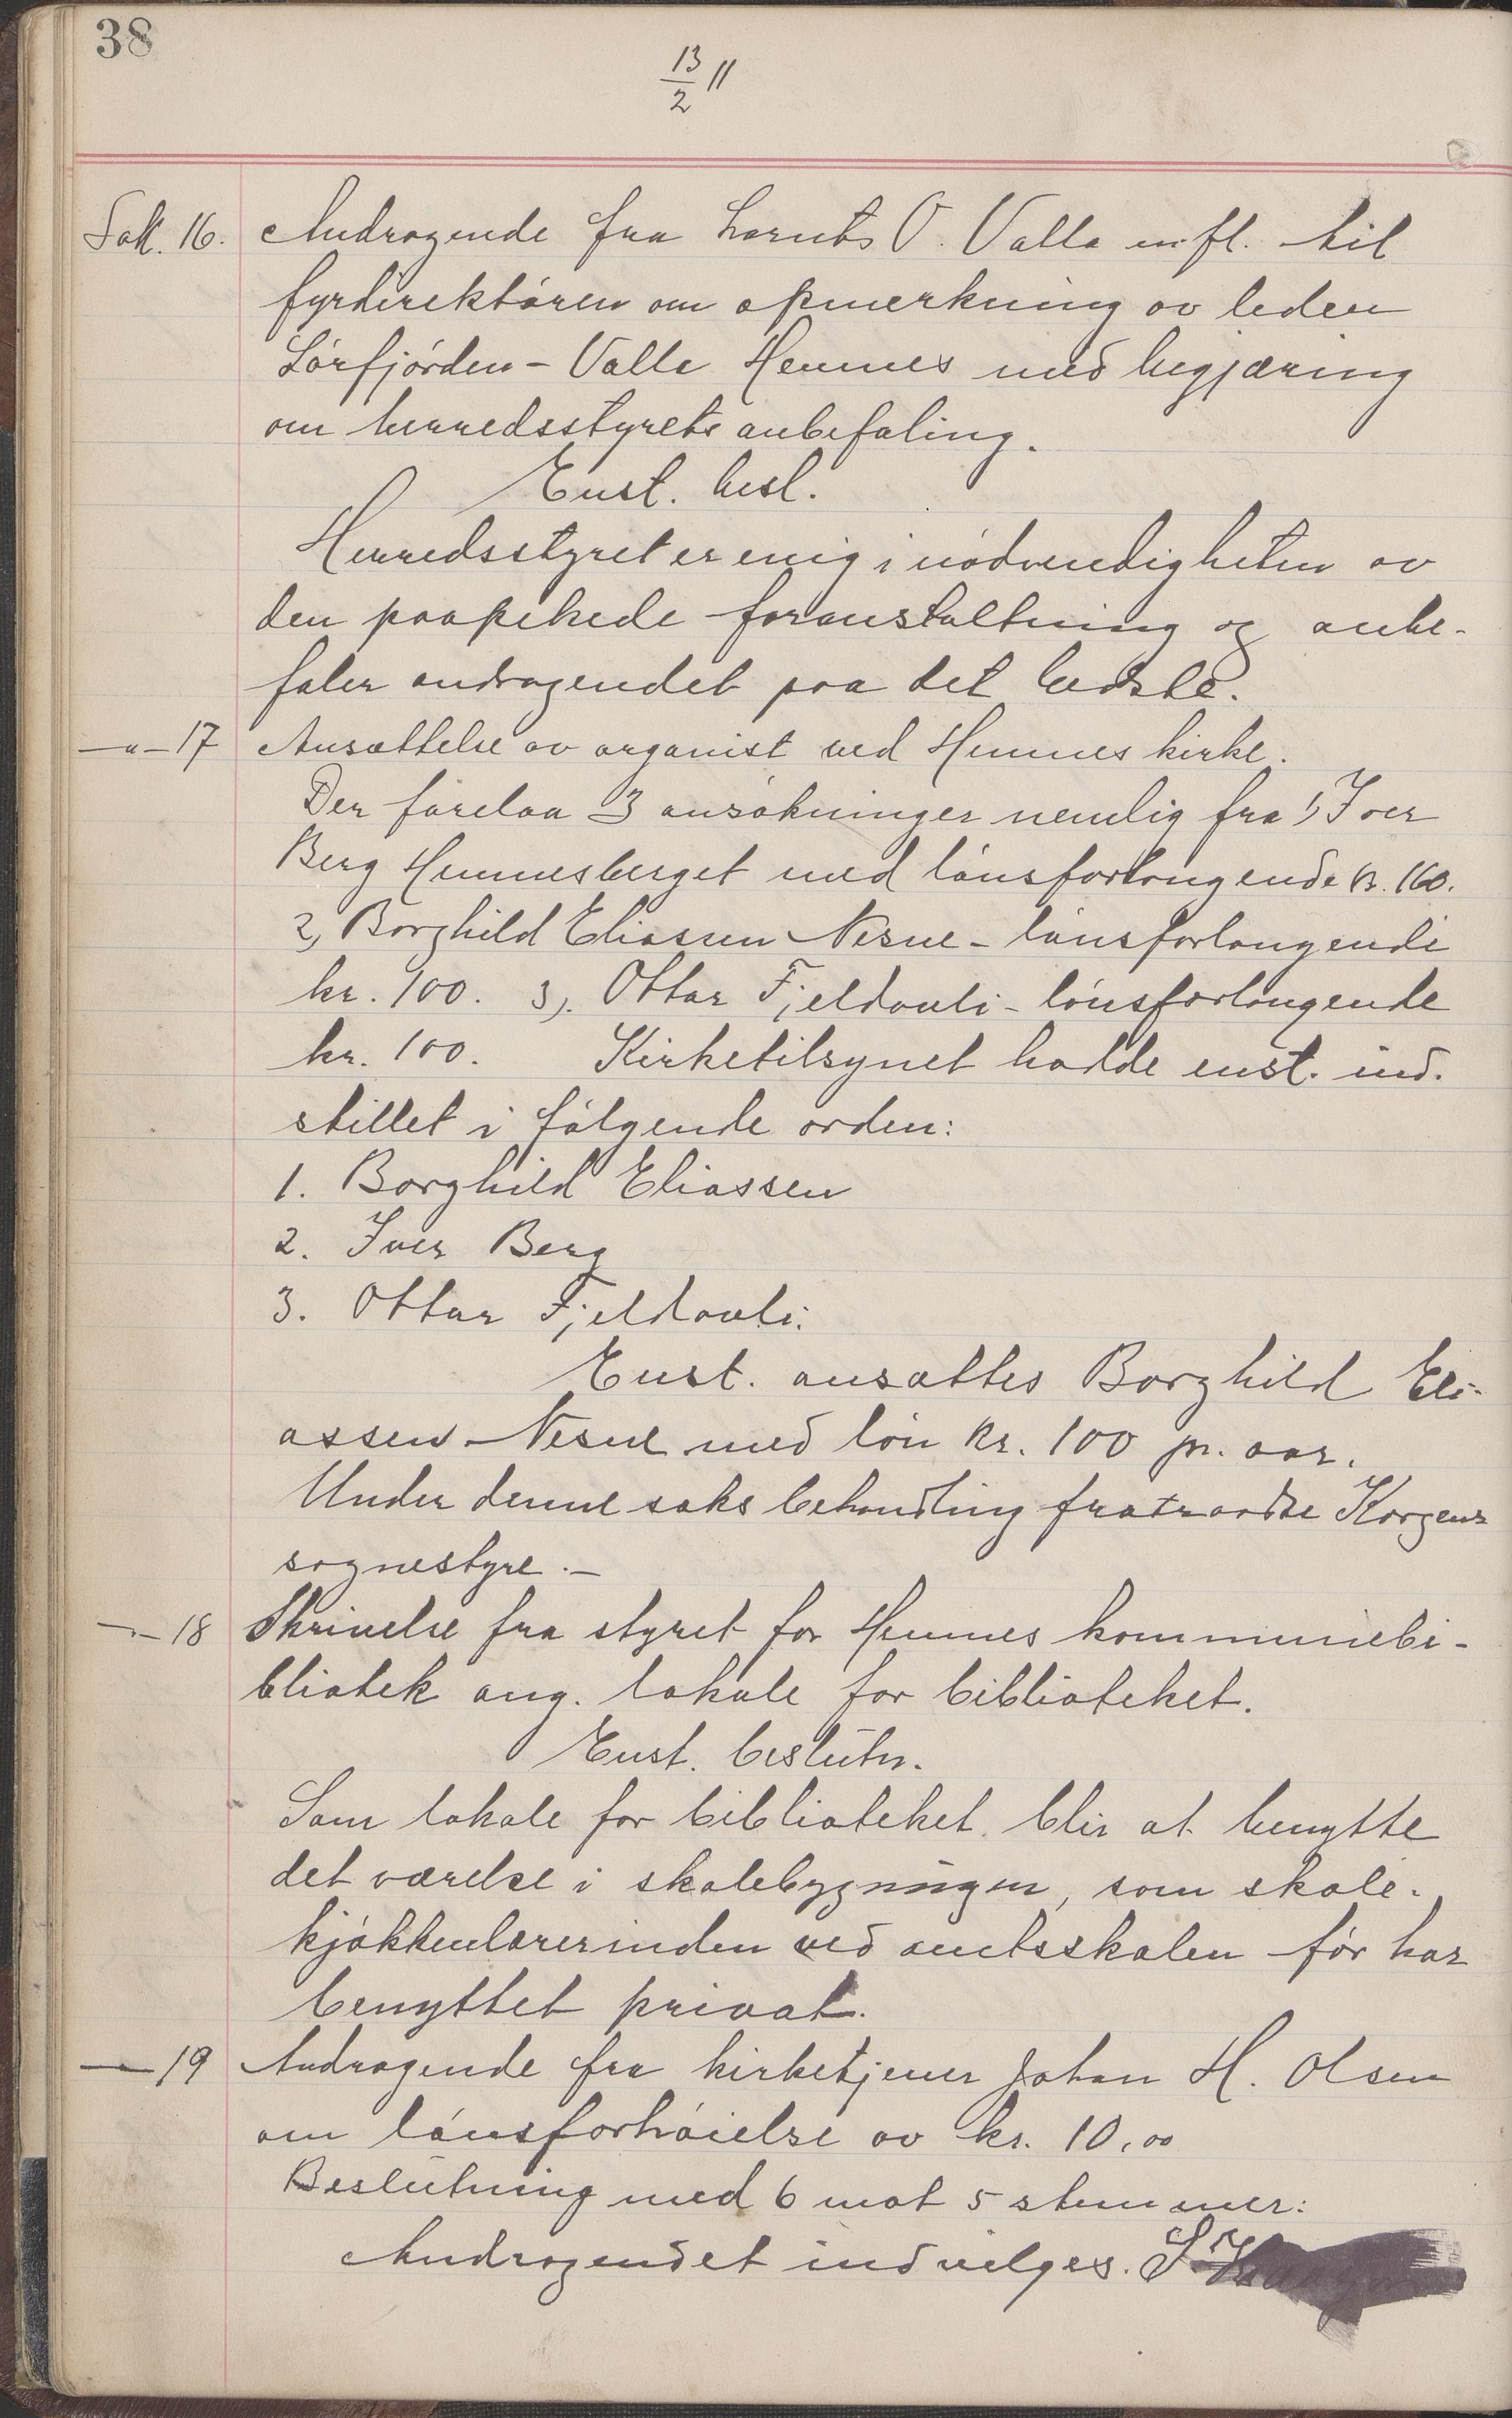 38
13/2 11
Sak. 16. Andragende fra Lornts O. Valla m.fl. til
fyrdirektören om opmerkning av leden
Sörfjörden - Valla Hemnes med begjæring
om herredsstyrets anbefaling.
Enst. besl.
Herredsstyret er enig i nödvendigheten av
den paapekede foranstaltning og anbe-
faler andragendet paa det bedste.
-"- 17 Ansættelse av organist ved Hemnes kirke.
Der forelaa 3 ansökninger nemlig fra 1, Iver
Berg Hemnesberget med lönsforlangende kr. 160.
2, Borghild Eliassen Nesne - lönsforlangende
kr. 100. 3). Ottar Fjeldavli - lönsforlangende
kr. 100. Kirketilsynet hadde enst. ind.
stillet i fölgende orden:
1. Borghild Eliassen
2. Iver Berg
3. Ottar Fjeldavli.
Enst. ansattes Borghild Eli-
assen Nesne med lön kr. 100 pr. aar.
Under denne saks behandling fratraadte Korgens
sognestyre. -
-"- 18 Skrivelse fra styret for Hemnes kommunebi-
bliotek ang. lokale for biblioteket.
Enst. beslutn.
Som lokale for biblioteket blir at benytte
det værelse i skolebygningen, som skole-
kjökkenlærerinden ved amtsskolen för har
benyttet privat.
-"- 19 Andragende fra kirketjener Johan H. Olsen
om lönsforhöielse av kr. 10,00
Beslutning med 6 mot 5 stemmer:
Andragendet indvilges.